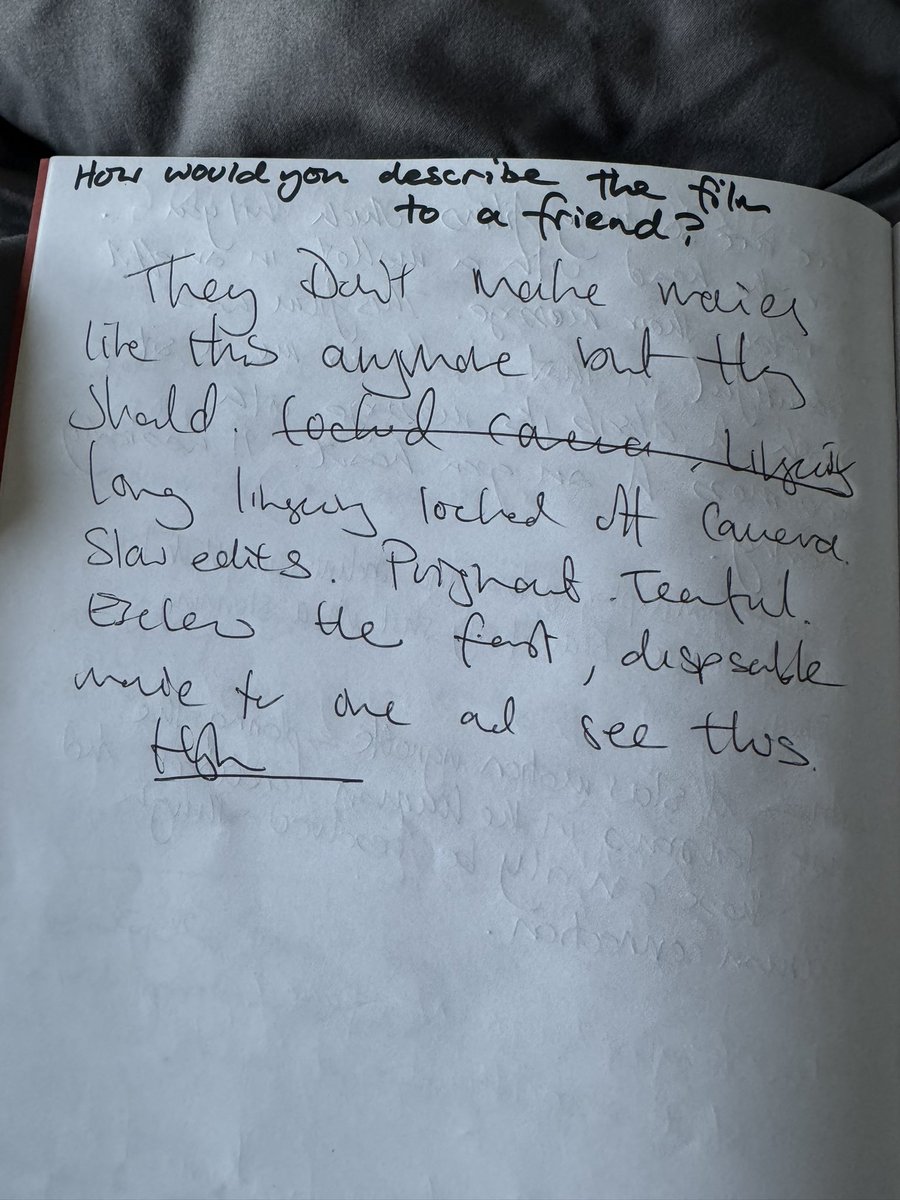 How would you describe the film
to a friend?
They Don't make movies
like this anymore but they
should. Locked Camera, Lingering
Long lingering locked off Camera.
Slow edits. Poignant. Tearful.
Eschew the fast, disposable
movie for one and see this.